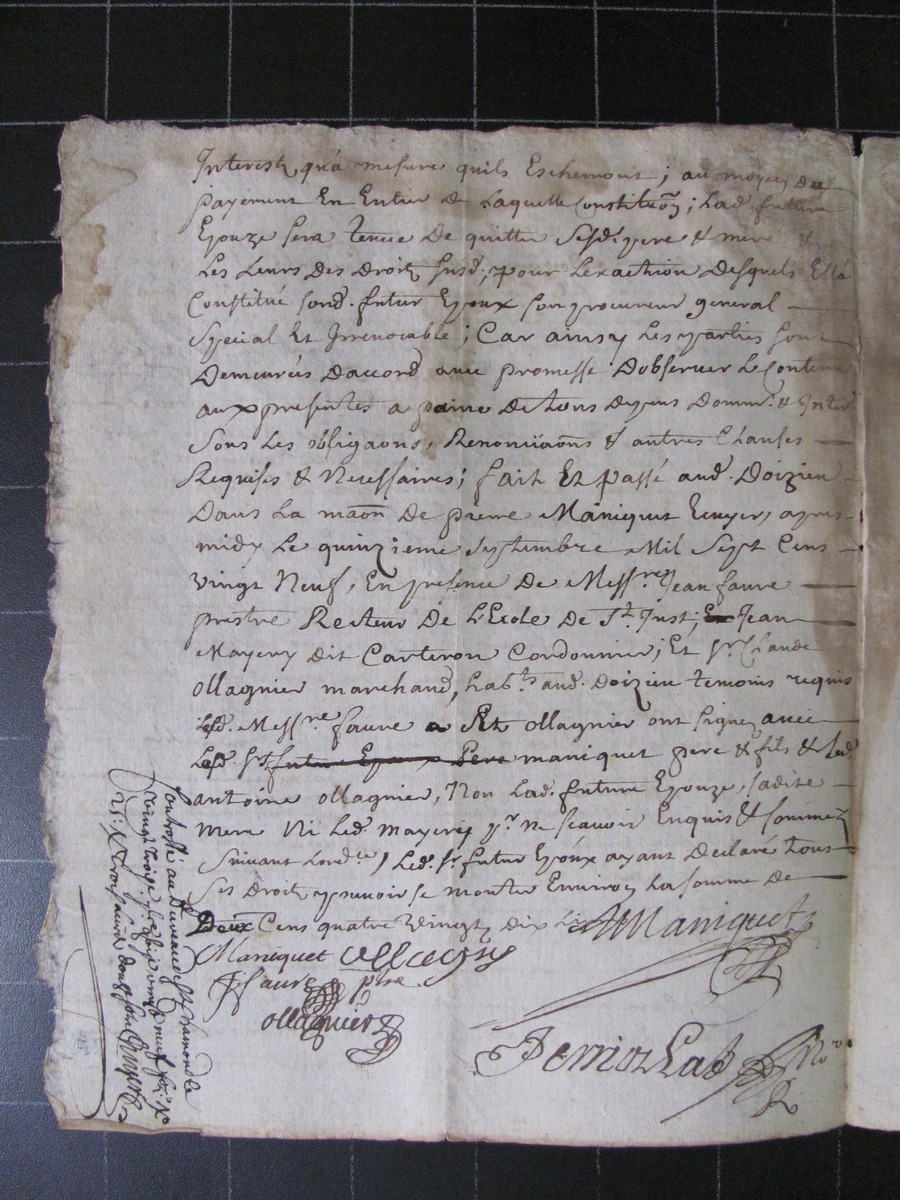 Interest qu'a mesure quils Escherront; au moyen du
payement En Entier de Laquelle Constituõn; Lad. future
Epouze sera tenue De quitter Sesd. pere & mere &
Les Leurs Des Droits susd. pour Lexaction Desquels Ella
Constitué sond. futur Epoux son procureur general
Special Et Irrevocable; Car ainsy Les parties sont
Demeurées Daccord avec promesse Dobserver Le Contenu
aux presentes a peine De tous Depens Domm. & Inter.
Sous Les obligaons, Renonciaons & autres Clauses
Requises & Necessaires; fait Et passé aud. Doizieu
Dans La maõn De pierre Maniquet Ecuyer, apres
midy Le quinzieme Septembre Mil Sept Cens
vingt Neuf, En presence De Messre Jean faure
prestre Recteur De L'Ecole De St Just; Et Jean
Mayery dit Carteron Cordonnier; Et Sr. Claude
Ollagnier marchand, habts aud. Doizieu temoins requis
Led. Messre faure Et Ollagnier ont signez avec
Led. Sr futur Epoux Pere maniquet pere & fils & Led.
antoine ollagnier, Non Lad. future Epouze, sadite
Mere Ni Led. mayery pr. ne scavoir Enquis & sommez
Suivant Lordce, Led. Sr. futur Epoux ayant Declaré tous
Ses Droits pouvoir se monter Environ La somme de
Deux Cens quatre vingt dix Li
Maniquet
Maniquet Ollagny
J faure ptre
ollagnier
Perriol Lad
Controllé au Bureau de St Chamond le
vingt trois 7bre vingt neuf